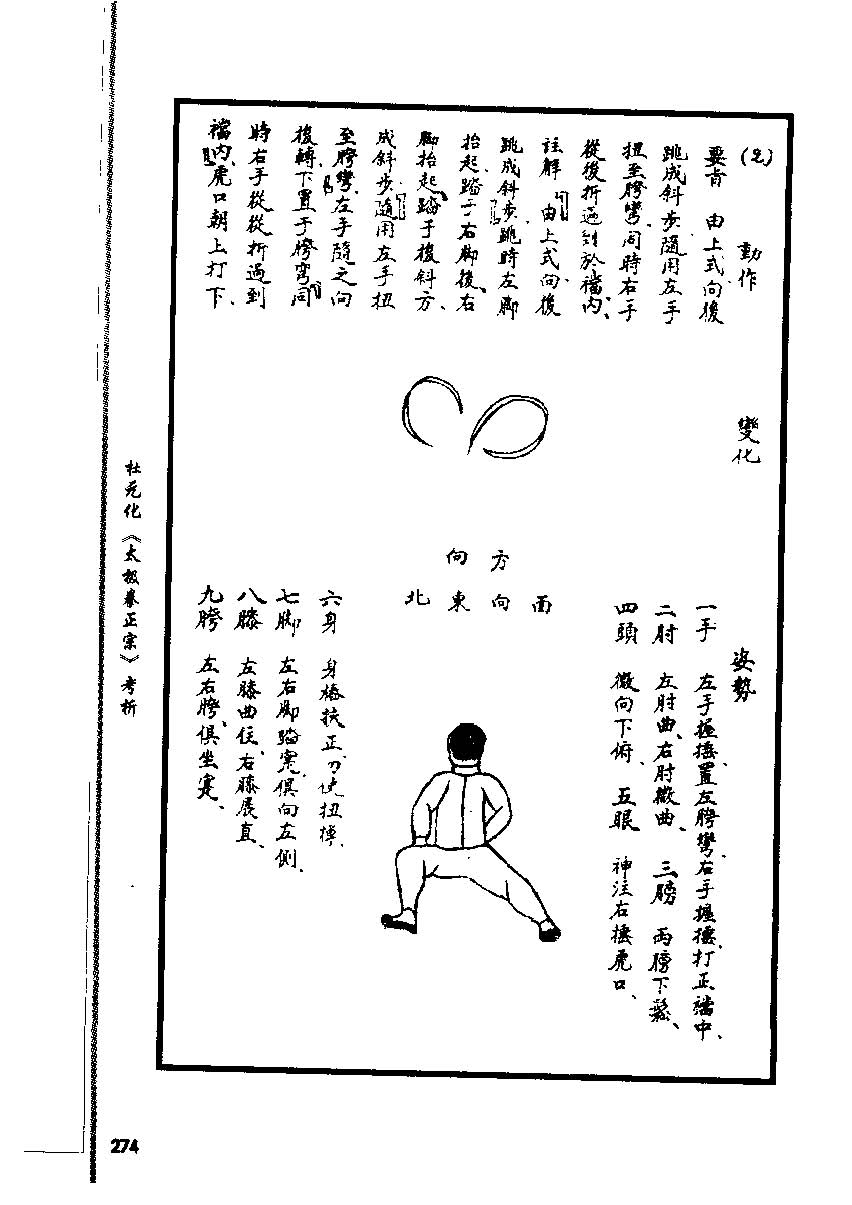 (2)
動作
要旨 由上式向後
跳成斜步、隨用左手
扭至胯彎、同時右手
從後折過到於襠內、
註解 由上式、向後
跳成斜步、跳時左脚
抬起、踏于右脚後、右
脚抬起、踏于後斜方、
成斜步、隨用左手扭
至胯彎、左手隨之向
後轉、下置于胯窩、同
時右手從從折過到
襠內、虎口朝上打下、
變化
方向
面向東北
姿勢
一手 左手捶置左胯彎、右手握捶、打正襠中、
二肘 左肘曲、右肘微曲、 三膀 兩膀下鬆、
四頭 微向下俯、 五眼 神注右捶虎口、
六身 身樁扶正、勿使扭掉、
七脚 左右脚踏實、俱向左側、
八膝 左膝曲住、右膝展直、
九胯 左右胯、俱坐寔、
杜元化《太极拳正宗》考析
274